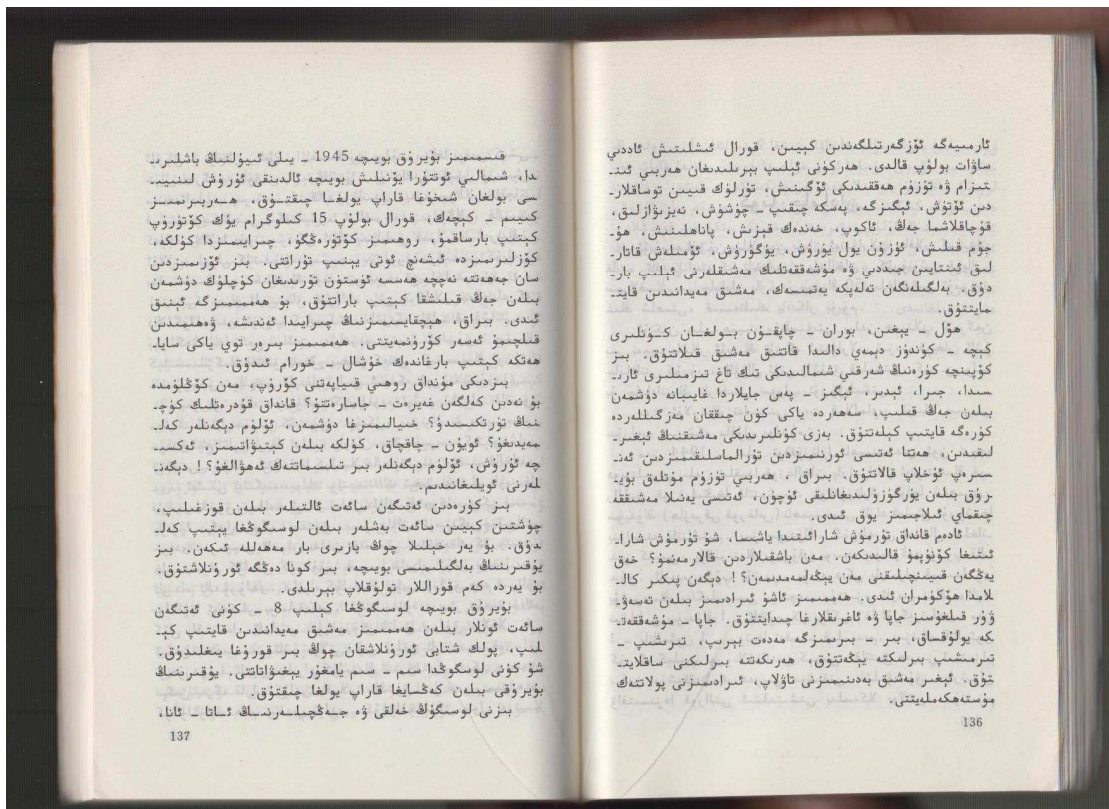 ئارمىيەگە ئۆزگەرتىلگەندىن كېيىن، قورال ئىشلىتىش ئاددىي
ساۋات بولۇپ قالدى. ھەركۈنى ئېلىپ بېرىلىدىغان ھەربىي ئىن-
تىزام ۋە تۈزۈم ھەققىدىكى ئۆگىنىش، تۈرلۈك قىيىن توساقلار-
دىن ئۆتۈش، ئېگىزگە، پەسكە چىقىپ - چۈشۈش، نەيزىۋازلىق،
قۇچاقلاشما جەڭ، ئاكوپ، خەندەك قېزىش، پاناھلىنىش، ھۇ-
جۇم قىلىش، ئۇزۇن يول يۈرۈش، يۈگۈرۈش، ئۆمىلەش قاتار-
لىق ئىنتايىن جىددىي ۋە مۇشەققەتلىك مەشىقلەرنى ئېلىپ بار-
دۇق. بەلگىلەنگەن تەلەپكە يەتمىسەك، مەشىق مەيدانىدىن قايت-
مايتتۇق.
ھۆل - يېغىن، بوران - چاپقۇن بولغان كۈنلىرى
كېچە - كۈندۈز دېمەي دالىدا قاتتىق مەشىق قىلاتتۇق. بىز
كۆپىنچە كۈرەنىڭ شەرقىي شىمالىدىكى تىك تاغ تىزمىلىرى ئارى-
سىدا، جىرا، ئېدىر، ئېگىز - پەس جايلاردا غايىبانە دۈشمەن
بىلەن جەڭ قىلىپ، سەھەردە ياكى كۈن چىققان مەزگىللەردە
كۈرەگە قايتىپ كېلەتتۇق. بەزى كۈنلىرىدىكى مەشىقنىڭ ئېغىر-
لىقىدىن، ھەتتا ئەتىسى ئورنىمىزدىن تۇرالماسلىقىمىزدىن ئەن-
سىرەپ ئۇخلاپ قالاتتۇق. بىراق ، ھەربىي تۈزۈم مۇتلەق بۇي-
رۇق بىلەن يۈرگۈزۈلىدىغانلىقى ئۈچۈن، ئەتىسى يەنىلا مەشىققە
چىقماي ئىلاجىمىز يوق ئىدى.
ئادەم قانداق تۇرمۇش شارائىتىدا ياشىسا، شۇ تۇرمۇش شارا-
ئىتىغا كۆنۈپمۇ قالىدىكەن. مەن باشقىلاردىن قالارمەنمۇ؟ خەق
يەڭگەن قىيىنچىلىقنى مەن يېڭەلمەمدىمەن؟! دېگەن پىكىر كال-
لامدا ھۆكۈمران ئىدى. ھەممىمىز ئاشۇ ئىرادىمىز بىلەن تەسەۋ-
ۋۇر قىلغۇسىز جاپا ۋە ئاغرىقلارغا چىدايتتۇق. جاپا - مۇشەققەت-
كە يولۇقساق، بىر - بىرىمىزگە مەدەت بېرىپ، تىرىشىپ -
تىرمىشىپ بىرلىكتە يېڭەتتۇق، ھەرىكەتتە بىرلىكنى ساقلايت-
تۇق. ئېغىر مەشىق بەدىنىمىزنى تاۋلاپ، ئىرادىمىزنى پولاتتەك
مۇستەھكەملەيتتى.
136
قىسمىمىز بۇيرۇق بويىچە 1945 - يىلى ئىيۇلنىڭ باشلىرى-
دا، شىمالىي ئوتتۇرا يۆنىلىش بويىچە ئالدىنقى ئۇرۇش لىنىيى-
سى بولغان شىخۇغا قاراپ يولغا چىقتۇق، ھەربىرىمىز
كىيىم - كېچەك، قورال بولۇپ 15 كىلوگرام يۈك كۆتۈرۈپ
كېتىپ بارساقمۇ، روھىمىز كۆتۈرەڭگۈ، چىرايىمىزدا كۈلكە،
كۆزلىرىمىزدە ئىشەنچ ئوتى يېنىپ تۇراتتى. بىز ئۆزىمىزدىن
سان جەھەتتە نەچچە ھەسسە ئۈستۈن تۇرىدىغان كۈچلۈك دۈشمەن
بىلەن جەڭ قىلىشقا كېتىپ باراتتۇق، بۇ ھەممىمىزگە ئېنىق
ئىدى. بىراق، ھېچقايسىمىزنىڭ چىرايىدا ئەندىشە، ۋەھىمىدىن
قىلچىمۇ ئەسەر كۆرۈنمەيتتى. ھەممىمىز بىرەر توي ياكى سايا-
ھەتكە كېتىپ بارغاندەك خۇشال - خورام ئىدۇق.
بىزدىكى مۇنداق روھىي قىياپەتنى كۆرۈپ، مەن كۆڭلۈمدە
بۇ نەدىن كەلگەن غەيرەت - جاسارەتتۇ؟ قانداق قۇدرەتلىك كۈچ-
نىڭ تۈرتكىسىدۇ؟ خىيالىمىزغا دۈشمەن، ئۆلۈم دېگەنلەر كەل-
مەيدىغۇ؟ ئويۇن - چاقچاق، كۈلكە بىلەن كېتىۋاتىمىز، ئەكسى-
چە ئۇرۇش، ئۆلۈم دېگەنلەر بىر تىلسىماتتەك ئەھۋالغۇ؟! دېگەن-
لەرنى ئويلىغانىدىم.
بىز كۈرەدىن ئەتىگەن سائەت ئالتىلەر بىلەن قوزغىلىپ،
چۈشتىن كېيىن سائەت بەشلەر بىلەن لوسىگوڭغا يېتىپ كەل-
دۇق. بۇ يەر خېلىلا چوڭ بازىرى بار مەھەللە ئىكەن. بىز
يۇقىرىنىڭ بەلگىلىمىسى بويىچە، بىر كونا دەڭگە ئورۇنلاشتۇق.
بۇ يەردە كەم قوراللار تولۇقلاپ بېرىلدى.
بۇيرۇق بويىچە لوسىگوڭغا كېلىپ 8 - كۈنى ئەتىگەن
سائەت ئونلار بىلەن ھەممىمىز مەشىق مەيدانىدىن قايتىپ كې-
لىپ، پولك شتابى ئورۇنلاشقان چوڭ بىر قورۇغا يىغىلدۇق.
شۇ كۈنى لوسىگوڭدا سىم - سىم يامغۇر يېغىۋاتاتتى. يۇقىرىنىڭ
بۇيرۇقى بىلەن كەڭسايغا قاراپ يولغا چىقتۇق.
بىزنى لوسىگۇڭ خەلقى ۋە جەڭچىلەرنىڭ ئاتا - ئانا،
137